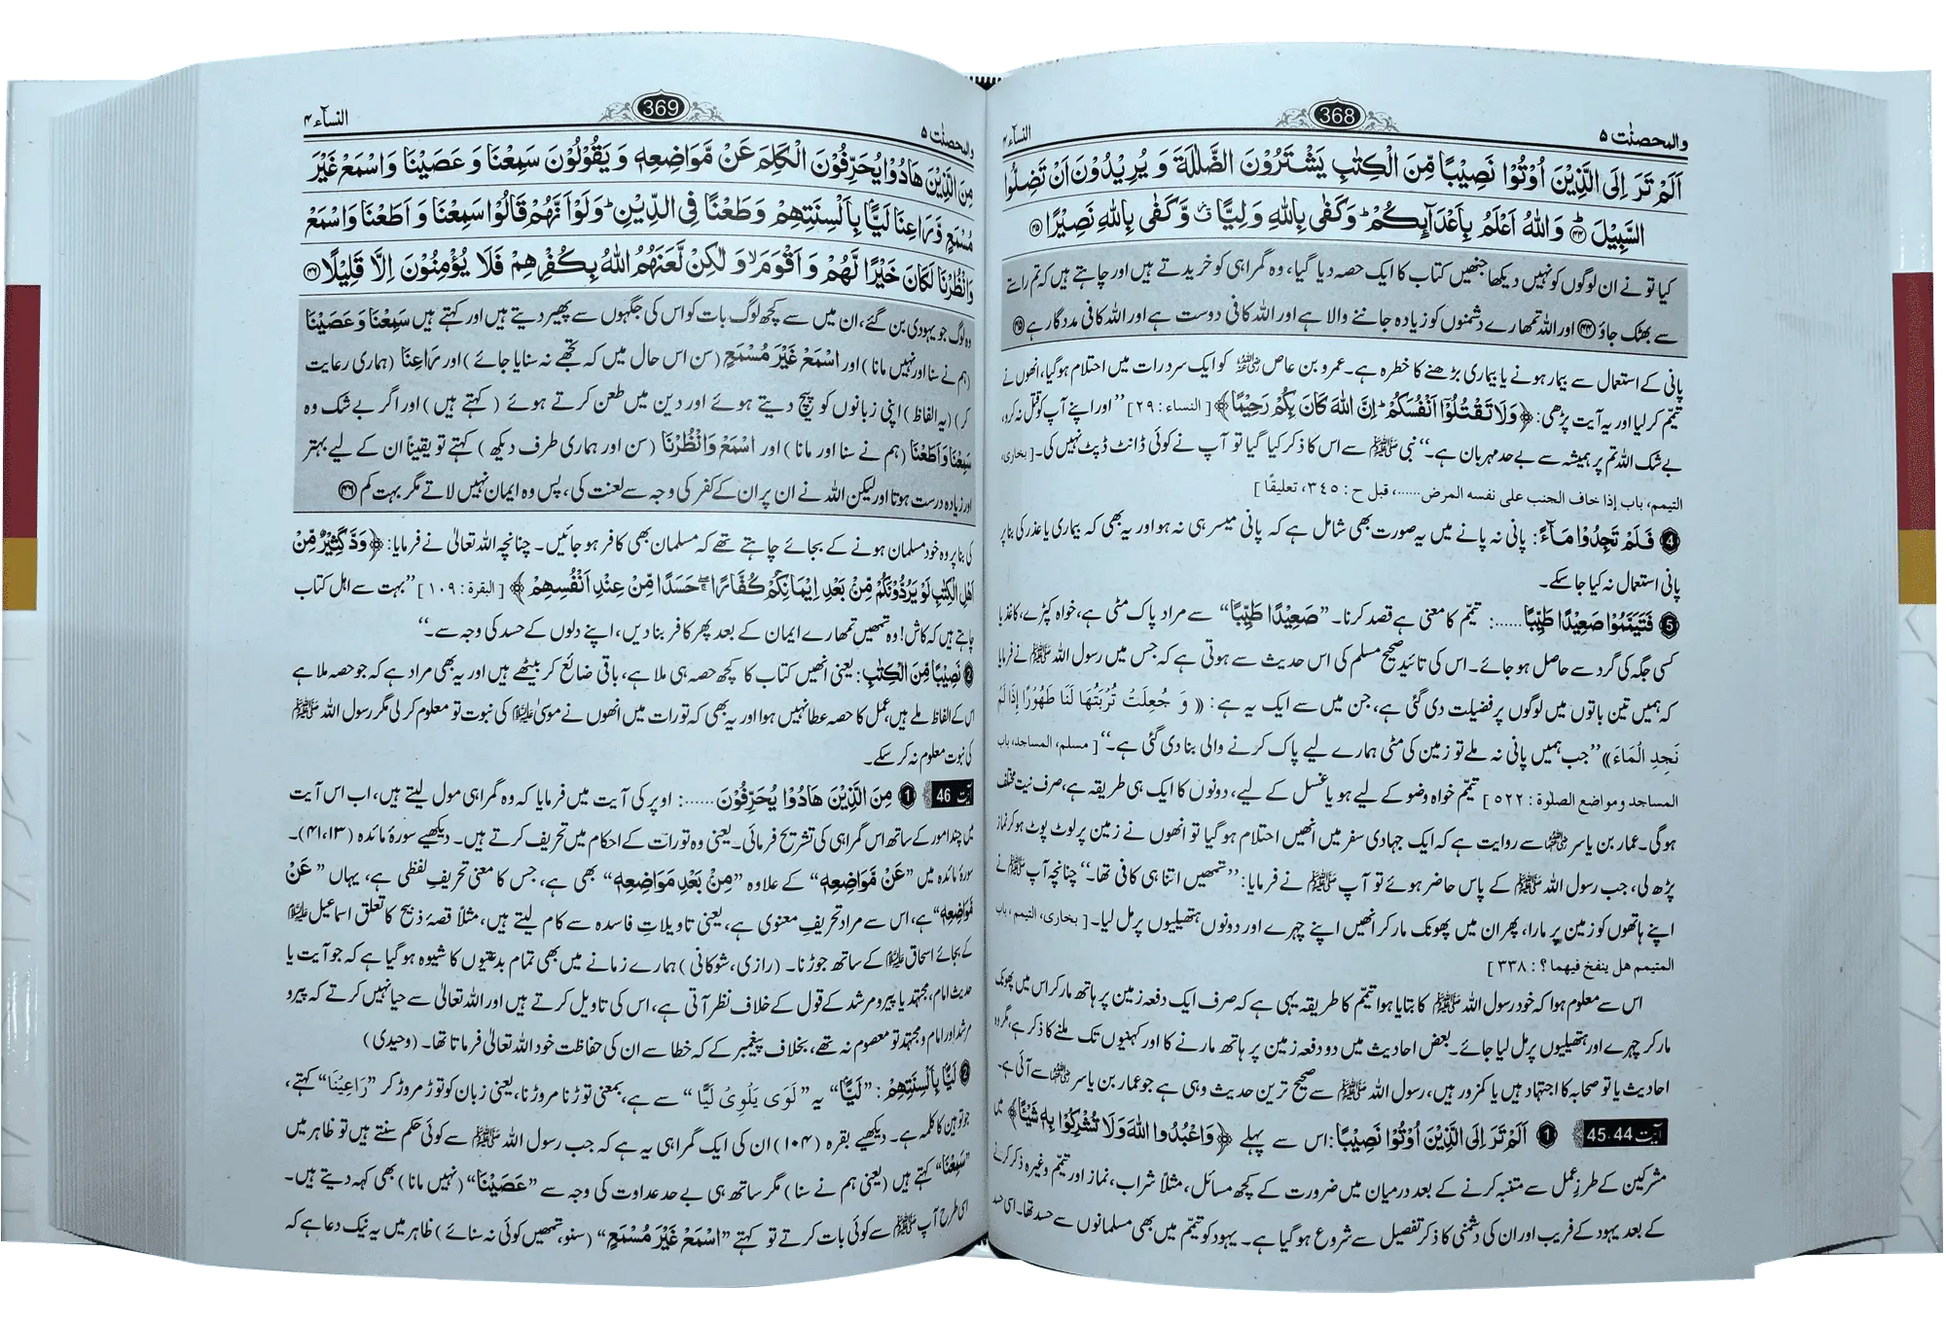 والمحصنٰت ۵
368
النسآء ۴
اَلَمْ تَرَ اِلَى الَّذِيْنَ اُوْتُوْا نَصِيْبًا مِّنَ الْكِتٰبِ يَشْتَرُوْنَ الضَّلٰلَةَ وَ يُرِيْدُوْنَ اَنْ تَضِلُّوا
السَّبِيْلَ ﴿۴۴﴾ وَاللّٰهُ اَعْلَمُ بِاَعْدَآىِٕكُمْ ؕ وَكَفٰى بِاللّٰهِ وَلِيًّا ۫ وَّكَفٰى بِاللّٰهِ نَصِيْرًا ﴿۴۵﴾
کیا تو نے ان لوگوں کو نہیں دیکھا جنھیں کتاب کا ایک حصہ دیا گیا، وہ گمراہی کو خریدتے ہیں اور چاہتے ہیں کہ تم راستے
سے بھٹک جاؤ ﴿۴۴﴾ اور اللہ تمھارے دشمنوں کو زیادہ جاننے والا ہے اور اللہ کافی دوست ہے اور اللہ کافی مددگار ہے ﴿۴۵﴾
پانی کے استعمال سے بیمار ہونے یا بیماری بڑھنے کا خطرہ ہے۔ عمرو بن عاص رضی اللہ عنہ کو ایک سرد رات میں احتلام ہوگیا، انھوں نے
تیمّم کر لیا اور یہ آیت پڑھی: ﴿وَلَا تَقْتُلُوْۤا اَنْفُسَكُمْ ؕ اِنَّ اللّٰهَ كَانَ بِكُمْ رَحِيْمًا﴾ [النساء : ۲۹] ’’اور اپنے آپ کو قتل نہ کرو،
بے شک اللہ تم پر ہمیشہ سے بے حد مہربان ہے۔‘‘ نبی ﷺ سے اس کا ذکر کیا گیا تو آپ نے کوئی ڈانٹ ڈپٹ نہیں کی۔ [ بخاری،
التیمم، باب إذا خاف الجنب علی نفسه المرض......، قبل ح : ۳٤۵، تعلیقًا ]
4 فَلَمْ تَجِدُوْا مَآءً: پانی نہ پانے میں یہ صورت بھی شامل ہے کہ پانی میسر ہی نہ ہو اور یہ بھی کہ بیماری یا عذر کی بنا پر
پانی استعمال نہ کیا جا سکے۔
5 فَتَيَمَّمُوْا صَعِيْدًا طَيِّبًا......: تیمّم کا معنی ہے قصد کرنا۔ ’’صَعِيْدًا طَيِّبًا‘‘ سے مراد پاک مٹی ہے، خواہ کپڑے، کاغذ یا
کسی جگہ کی گرد سے حاصل ہو جائے۔ اس کی تائید صحیح مسلم کی اس حدیث سے ہوتی ہے کہ جس میں رسول اللہ ﷺ نے فرمایا
کہ ہمیں تین باتوں میں لوگوں پر فضیلت دی گئی ہے، جن میں سے ایک یہ ہے: « وَ جُعِلَتْ تُرْبَتُهَا لَنَا طَهُوْرًا إِذَا لَمْ
نَجِدِ الْمَاءَ» ’’جب ہمیں پانی نہ ملے تو زمین کی مٹی ہمارے لیے پاک کرنے والی بنا دی گئی ہے۔‘‘ [ مسلم، المساجد، باب
المساجد ومواضع الصلوٰة : ۵۲۲ ] تیمّم خواہ وضو کے لیے ہو یا غسل کے لیے، دونوں کا ایک ہی طریقہ ہے، صرف نیت مختلف
ہوگی۔ عمار بن یاسر رضی اللہ عنہما سے روایت ہے کہ ایک جہادی سفر میں انھیں احتلام ہو گیا تو انھوں نے زمین پر لوٹ پوٹ ہو کر نماز
پڑھ لی، جب رسول اللہ ﷺ کے پاس حاضر ہوئے تو آپ ﷺ نے فرمایا: ’’تمھیں اتنا ہی کافی تھا۔‘‘ چنانچہ آپ ﷺ نے
اپنے ہاتھوں کو زمین پر مارا، پھر ان میں پھونک مار کر انھیں اپنے چہرے اور دونوں ہتھیلیوں پر مل لیا۔ [ بخاری، التیمم، باب
المتیمم هل ینفخ فیهما؟ : ۳۳۸ ]
اس سے معلوم ہوا کہ خود رسول اللہ ﷺ کا بتایا ہوا تیمّم کا طریقہ یہی ہے کہ صرف ایک دفعہ زمین پر ہاتھ مار کر اس میں پھونک
مار کر چہرے اور ہتھیلیوں پر مل لیا جائے۔ بعض احادیث میں دو دفعہ زمین پر ہاتھ مارنے کا اور کہنیوں تک ملنے کا ذکر ہے، مگر وہ
احادیث یا تو صحابہ کا اجتہاد ہیں یا کمزور ہیں، رسول اللہ ﷺ سے صحیح ترین حدیث وہی ہے جو عمار بن یاسر رضی اللہ عنہما سے آئی ہے۔
آیت 45،44 1 اَلَمْ تَرَ اِلَى الَّذِيْنَ اُوْتُوْا نَصِيْبًا: اس سے پہلے ﴿وَاعْبُدُوا اللّٰهَ وَلَا تُشْرِكُوْا بِهٖ شَيْئًا﴾ میں
مشرکین کے طرزِ عمل سے متنبہ کرنے کے بعد درمیان میں ضرورت کے کچھ مسائل، مثلاً شراب، نماز اور تیمّم وغیرہ ذکر کرنے
کے بعد یہود کے فریب اور ان کی دشمنی کا ذکر تفصیل سے شروع ہو گیا ہے۔ یہود کو تیمّم میں بھی مسلمانوں سے حسد تھا۔ اسی حسد
والمحصنٰت ۵
369
النسآء ۴
مِنَ الَّذِيْنَ هَادُوْا يُحَرِّفُوْنَ الْكَلِمَ عَنْ مَّوَاضِعِهٖ وَ يَقُوْلُوْنَ سَمِعْنَا وَ عَصَيْنَا وَاسْمَعْ غَيْرَ
مُسْمَعٍ وَّ رَاعِنَا لَيًّۢا بِاَلْسِنَتِهِمْ وَ طَعْنًا فِى الدِّيْنِ ؕ وَلَوْ اَنَّهُمْ قَالُوْا سَمِعْنَا وَ اَطَعْنَا وَاسْمَعْ
وَانْظُرْنَا لَكَانَ خَيْرًا لَّهُمْ وَ اَقْوَمَ ۙ وَ لٰكِنْ لَّعَنَهُمُ اللّٰهُ بِكُفْرِهِمْ فَلَا يُؤْمِنُوْنَ اِلَّا قَلِيْلًا ﴿۴۶﴾
وہ لوگ جو یہودی بن گئے، ان میں سے کچھ لوگ بات کو اس کی جگہوں سے پھیر دیتے ہیں اور کہتے ہیں سَمِعْنَا وَ عَصَيْنَا
(ہم نے سنا اور نہیں مانا) اور اسْمَعْ غَيْرَ مُسْمَعٍ (سن اس حال میں کہ تجھے نہ سنایا جائے) اور رَاعِنَا (ہماری رعایت
کر) (یہ الفاظ) اپنی زبانوں کو پیچ دیتے ہوئے اور دین میں طعن کرتے ہوئے (کہتے ہیں) اور اگر بے شک وہ
سَمِعْنَا وَاَطَعْنَا (ہم نے سنا اور مانا) اور اسْمَعْ وَانْظُرْنَا (سن اور ہماری طرف دیکھ) کہتے تو یقینًا ان کے لیے بہتر
اور زیادہ درست ہوتا اور لیکن اللہ نے ان پر ان کے کفر کی وجہ سے لعنت کی، پس وہ ایمان نہیں لاتے مگر بہت کم ﴿۴۶﴾
کی بنا پر وہ خود مسلمان ہونے کے بجائے چاہتے تھے کہ مسلمان بھی کافر ہو جائیں۔ چنانچہ اللہ تعالیٰ نے فرمایا: ﴿وَدَّ كَثِيْرٌ مِّنْ
اَهْلِ الْكِتٰبِ لَوْ يَرُدُّوْنَكُمْ مِّنْۢ بَعْدِ اِيْمَانِكُمْ كُفَّارًا ۖۚ حَسَدًا مِّنْ عِنْدِ اَنْفُسِهِمْ﴾ [ البقرة : ۱۰۹ ] ’’بہت سے اہل کتاب
چاہتے ہیں کہ کاش! وہ تمھیں تمھارے ایمان کے بعد پھر کافر بنا دیں، اپنے دلوں کے حسد کی وجہ سے۔‘‘
2 نَصِيْبًا مِّنَ الْكِتٰبِ: یعنی انھیں کتاب کا کچھ حصہ ہی ملا ہے، باقی ضائع کر بیٹھے ہیں اور یہ بھی مراد ہے کہ جو حصہ ملا ہے
اس کے الفاظ ملے ہیں، عمل کا حصہ عطا نہیں ہوا اور یہ بھی کہ تورات میں انھوں نے موسیٰ علیہ السلام کی نبوت تو معلوم کر لی مگر رسول اللہ ﷺ
کی نبوت معلوم نہ کر سکے۔
آیت 46 1 مِنَ الَّذِيْنَ هَادُوْا يُحَرِّفُوْنَ......: اوپر کی آیت میں فرمایا کہ وہ گمراہی مول لیتے ہیں، اب اس آیت
میں چند امور کے ساتھ اس گمراہی کی تشریح فرمائی۔ یعنی وہ تورات کے احکام میں تحریف کرتے ہیں۔ دیکھیے سورۂ مائدہ (۴۱،۱۳)۔
سورۂ مائدہ میں ’’عَنْ مَّوَاضِعِهٖ‘‘ کے علاوہ ’’مِنْۢ بَعْدِ مَوَاضِعِهٖ‘‘ بھی ہے، جس کا معنی تحریفِ لفظی ہے، یہاں ’’عَنْ
مَّوَاضِعِهٖ‘‘ ہے، اس سے مراد تحریفِ معنوی ہے، یعنی تاویلاتِ فاسدہ سے کام لیتے ہیں، مثلاً قصۂ ذبیح کا تعلق اسماعیل علیہ السلام
کے بجائے اسحاق علیہ السلام کے ساتھ جوڑنا۔ (رازی، شوکانی) ہمارے زمانے میں بھی تمام بدعتیوں کا شیوہ ہو گیا ہے کہ جو آیت یا
حدیث امام، مجتہد یا پیر و مرشد کے قول کے خلاف نظر آتی ہے، اس کی تاویل کرتے ہیں اور اللہ تعالیٰ سے حیا نہیں کرتے کہ پیر و
مرشد اور امام و مجتہد تو معصوم نہ تھے، بخلاف پیغمبر کے کہ خطا سے ان کی حفاظت خود اللہ تعالیٰ فرماتا تھا۔ (وحیدی)
2 لَيًّۢا بِاَلْسِنَتِهِمْ: ’’لَيًّا‘‘ یہ ’’لَوَى يَلْوِيْ لَيًّا‘‘ سے ہے، بمعنی توڑنا مروڑنا، یعنی زبان کو توڑ مروڑ کر ’’رَاعِيْنَا‘‘ کہتے،
جو توہین کا کلمہ ہے۔ دیکھیے بقرہ (۱۰۴) ان کی ایک گمراہی یہ ہے کہ جب رسول اللہ ﷺ سے کوئی حکم سنتے ہیں تو ظاہر میں
’’سَمِعْنَا‘‘ کہتے ہیں (یعنی ہم نے سنا) مگر ساتھ ہی بے حد عداوت کی وجہ سے ’’عَصَيْنَا‘‘ (نہیں مانا) بھی کہہ دیتے ہیں۔
اسی طرح آپ ﷺ سے کوئی بات کرتے تو کہتے ’’اسْمَعْ غَيْرَ مُسْمَعٍ‘‘ (سنو، تمھیں کوئی نہ سنائے) ظاہر میں یہ نیک دعا ہے کہ